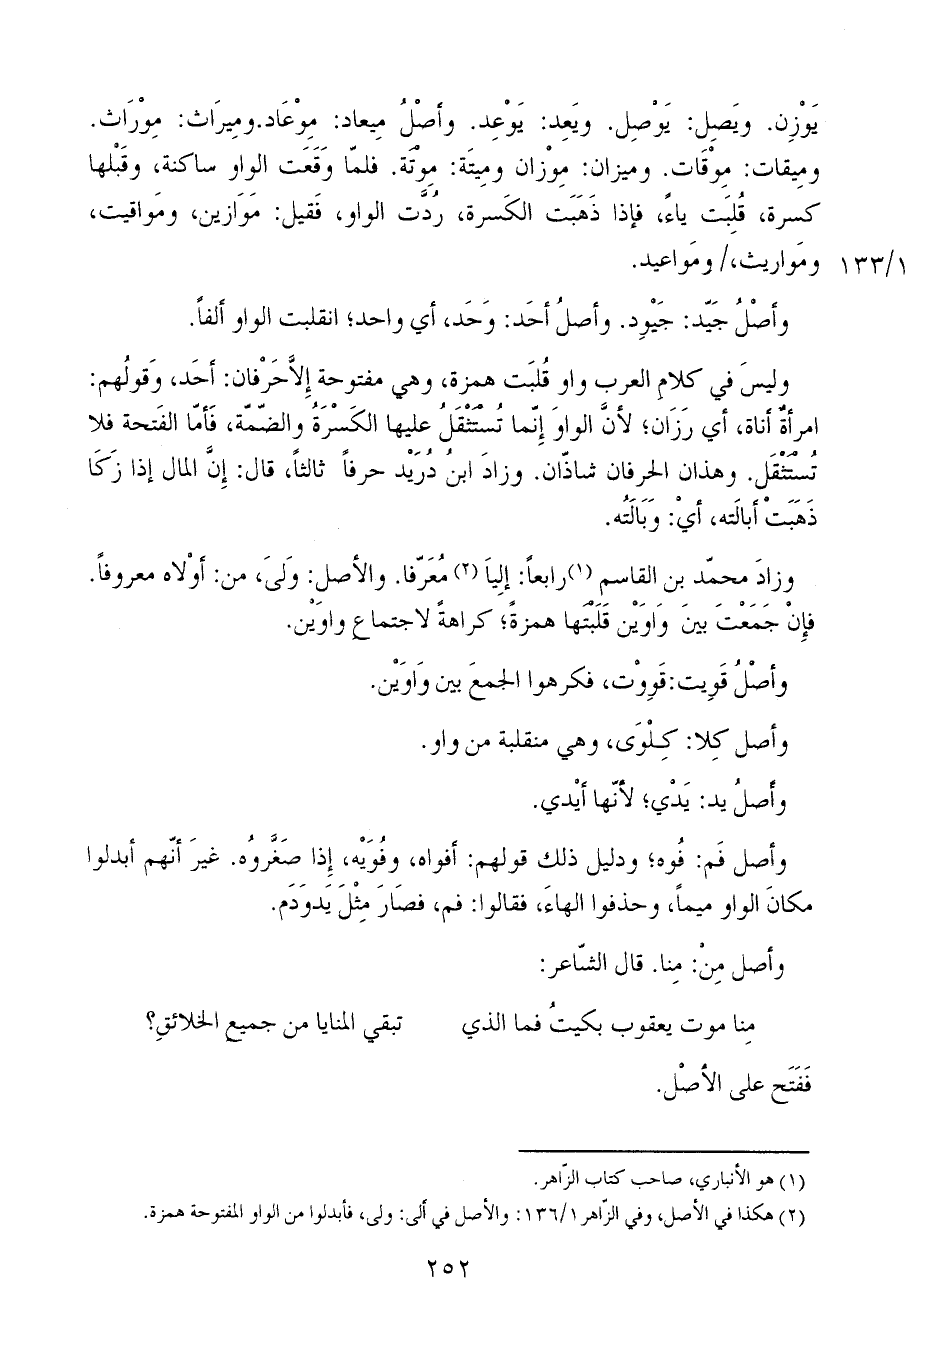 يَوْزِن. ويَصِل: يَوْصِل. ويَعِد: يَوْعِد. وأصْلُ مِيعاد: مِوْعَاد.ومِيرَاث: مِوْرَاث.
ومِيقات: مِوْقَات. وميزان: مِوْزان ومِيتَة: مِوْتَة. فلمّا وَقَعَت الواو ساكنة، وقَبْلها
كسرة، قُلِبَت ياءً، فإذا ذَهَبَت الكَسرة، رُدَّت الواو، فَقيل: مَوَازين، ومَواقيت،
ومَواريث،/ ومَواعيد. ١٣٣/١
وأصْلُ جَيّد: جَيْوِد. وأصلُ أحَد: وَحَد، أي واحد؛ انقلبت الواو ألفاً.
وليسَ في كلامِ العرب واو قُلبَت همزة، وهي مفتوحة إلاَّحَرْفان: أحَد، وَقولُهم:
امرأةٌ أناة، أي رَزَان؛ لأنَّ الواوَ إنّما تُسْتَثْقَلُ عليها الكَسْرَةُ والضّمّة، فَأمّا الفَتحة فلا
تُستَثْقَل. وهذان الحرفان شاذّان. وزادَ ابنُ دُرَيْد حرفاً ثالثاً، قال: إنَّ المال إذا زَكَا
ذهَبَتْ أبالَته، أيْ: وَبَالَتُه.
وزادَ محمّد بن القاسم (١)رابعاً: إلياَ (٢)مُعَرّفا. والأصل: وِلَىَ، من: أوْلاه معروفاً.
فإنْ جَمَعْتَ بينَ وَاوَيْن قَلَبْتَها همزةً؛ كراهةً لاجتماع واوَيْن.
وأصْلُ قَوِيت:قَوِوْت، فكرهوا الجمعَ بين وَاوَيْن.
وأصل كِلا: كِلْوَى، وهي منقلبة من واو.
وأصلُ يد: يَدْي؛ لأنّها أيْدي.
وأصل فَم: فُوه؛ ودليل ذلك قولهم: أفواه، وفُوَيْه، إذا صَغَّروُه. غيرَ أنّهم أبدلوا
مكانَ الواو ميماً، وحذفوا الهاءَ، فقالوا: فم، فصَارَ مِثْلَ يَدوَدَم.
وأصل مِنْ: مِنا. قال الشّاعر:
مِنا موت يعقوب بكيتُ فما الذي تبقي المنايا من جميع الخلائقِ؟
فَفَتَح على الأصْل.
(١) هو الأنباري، صاحب كتاب الزّاهر.
(٢) هكذا في الأصل، وفي الزّاهر ١٣٦/١: والأصل في ألى: ولى، فأبدلوا من الواو المفتوحة همزة.
٢٥٢